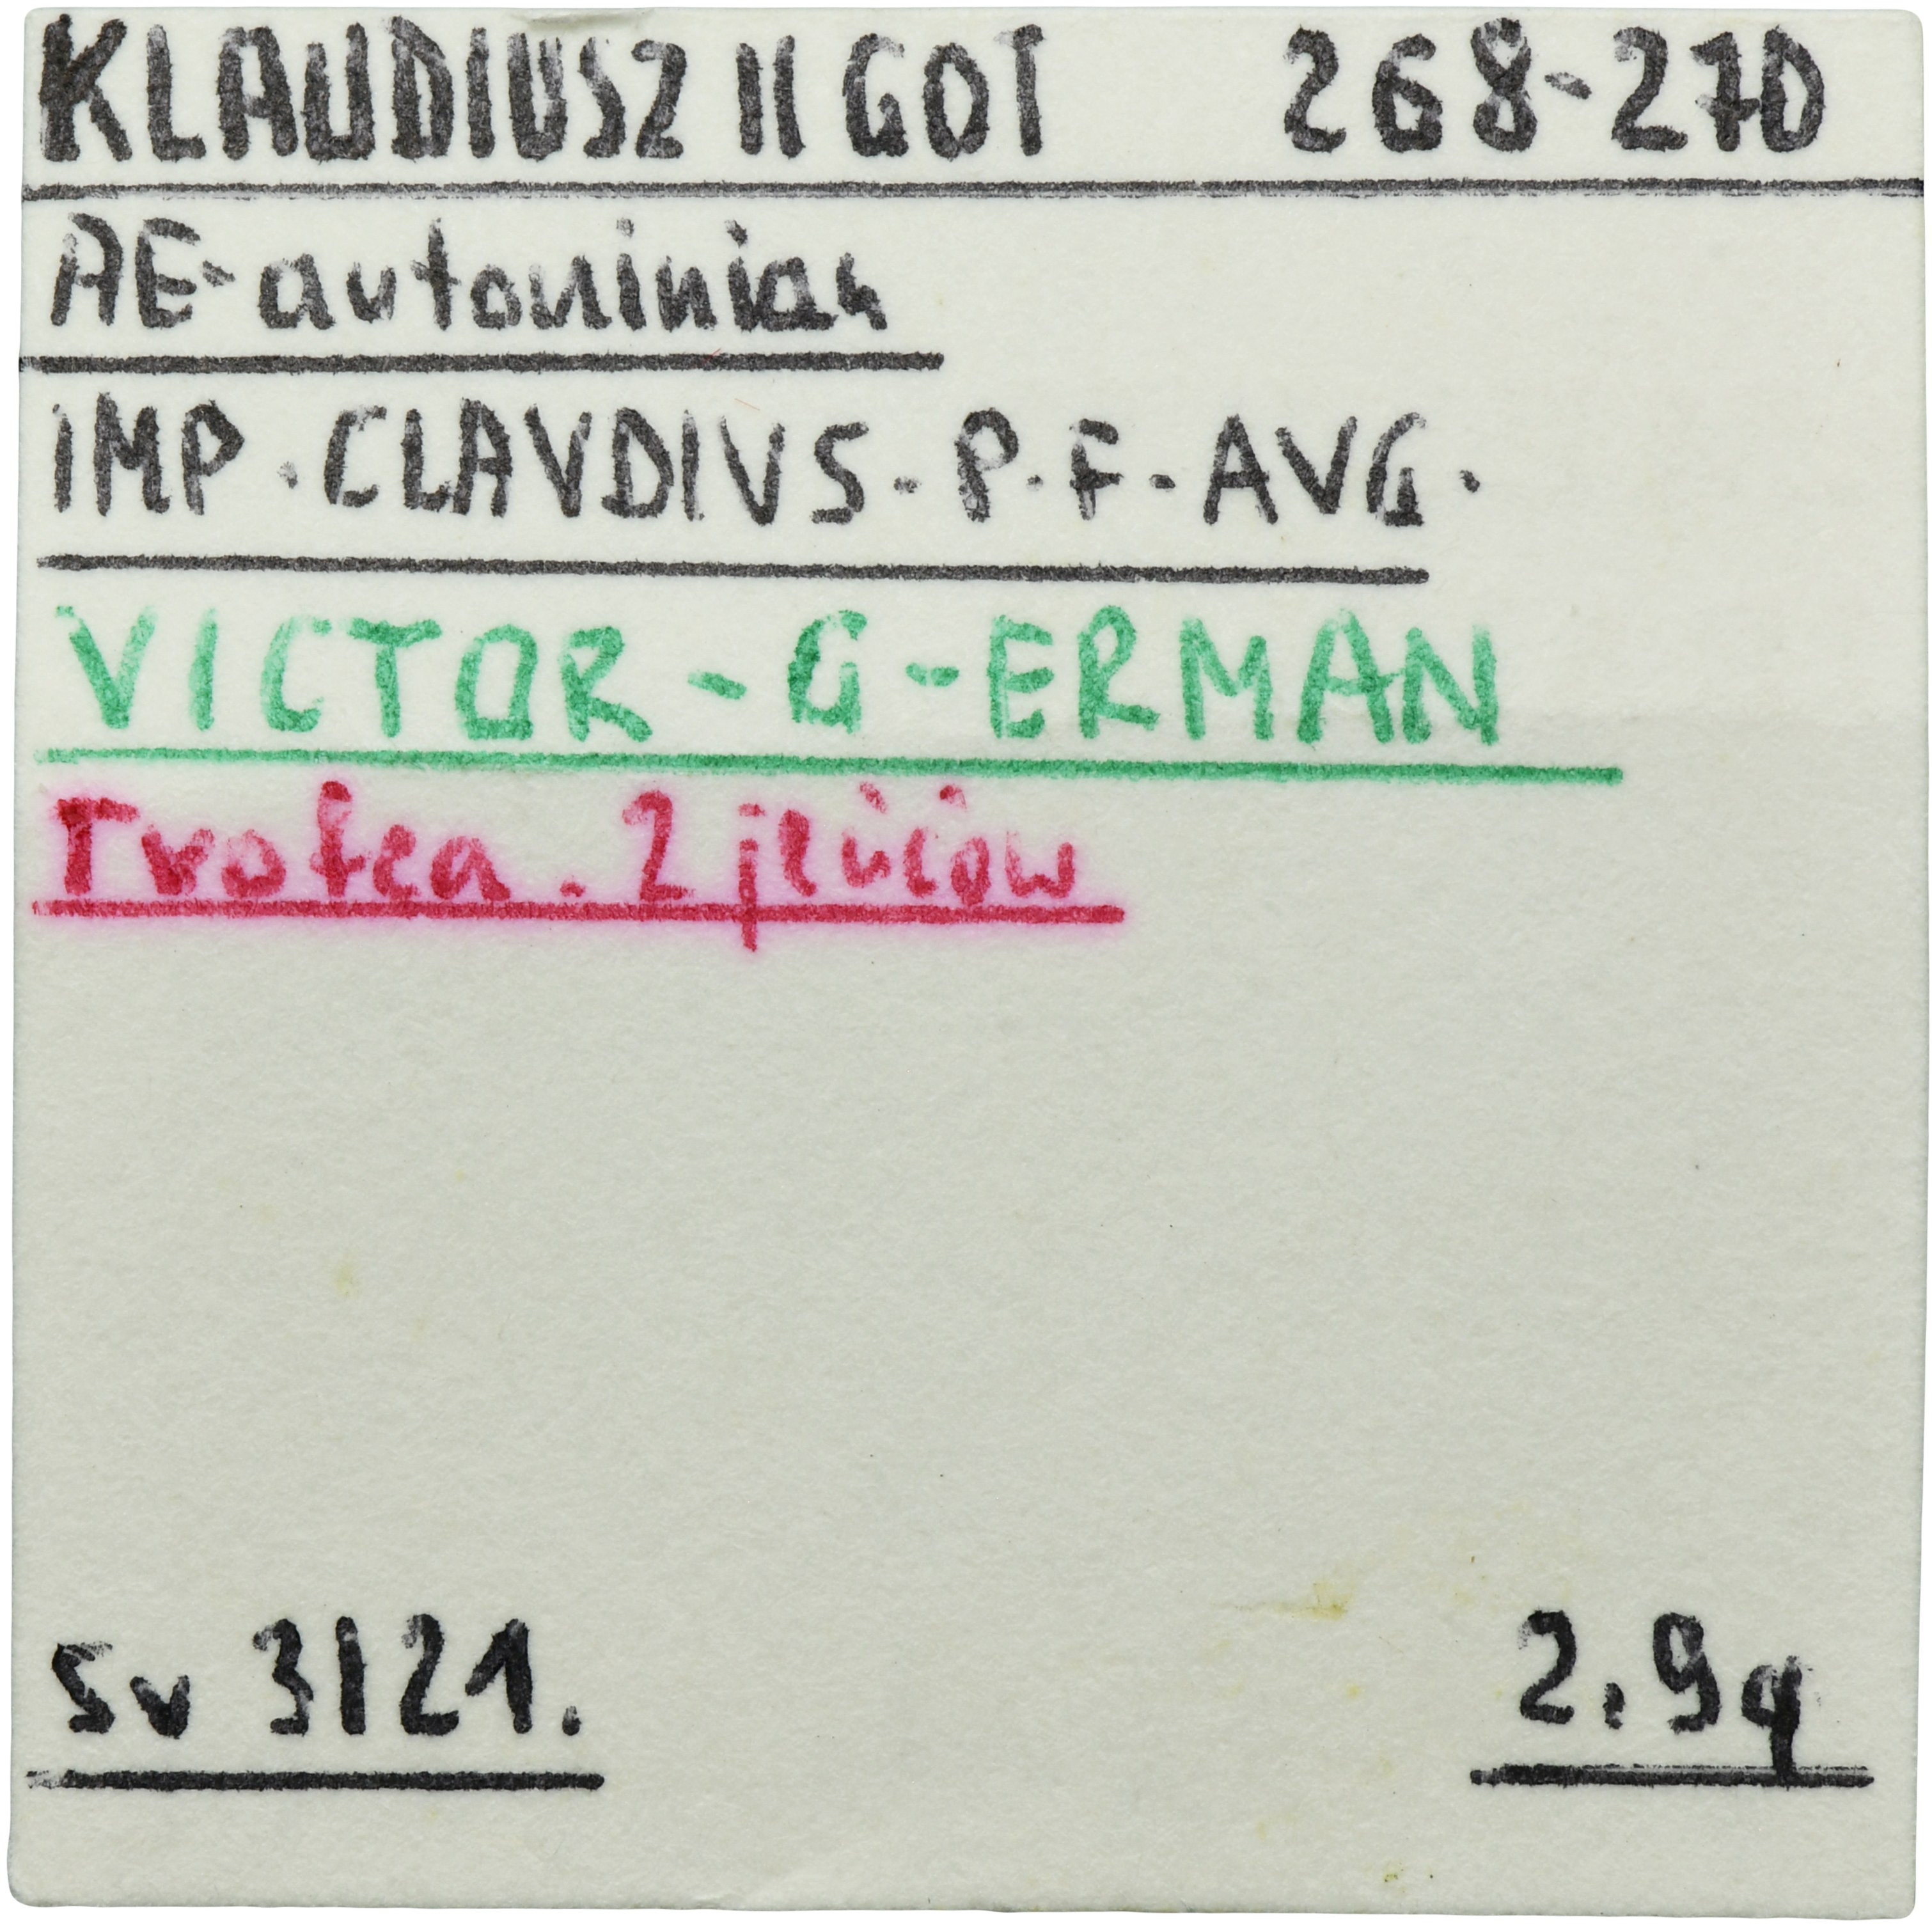 KLAUDIUSZ II GOT 268-270
AE-antoninian
IMP . CLAVDIVS - P. F - AVG .
VICTOR - G - ERMAN
Trofea . 2 jeńców
sv 3121.
2.9g